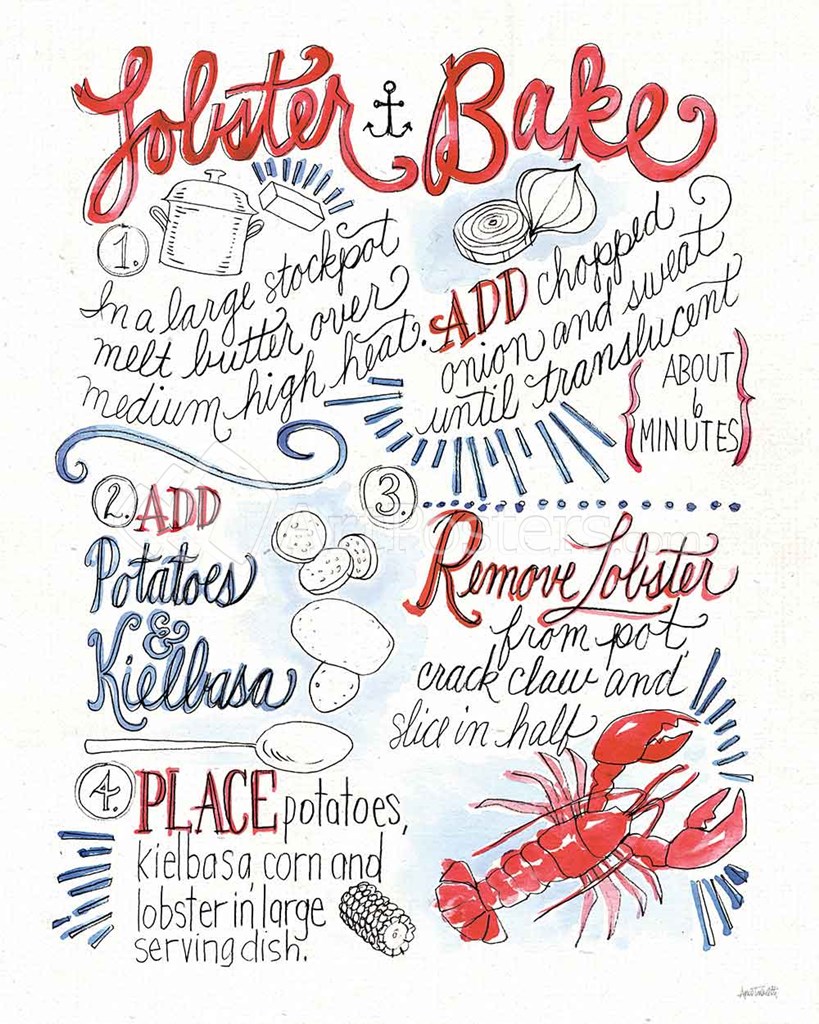 Lobster Bake
1.
In a large stockpot
melt butter over
medium high heat.
ADD chopped
onion and sweat
until translucent
{ABOUT
6
MINUTES}
2. ADD
Potatoes
&
Kielbasa
3.
Remove Lobster
from pot,
crack claw and
slice in half
4. PLACE potatoes,
kielbasa, corn and
lobster in large
serving dish.
ArtPosters.com